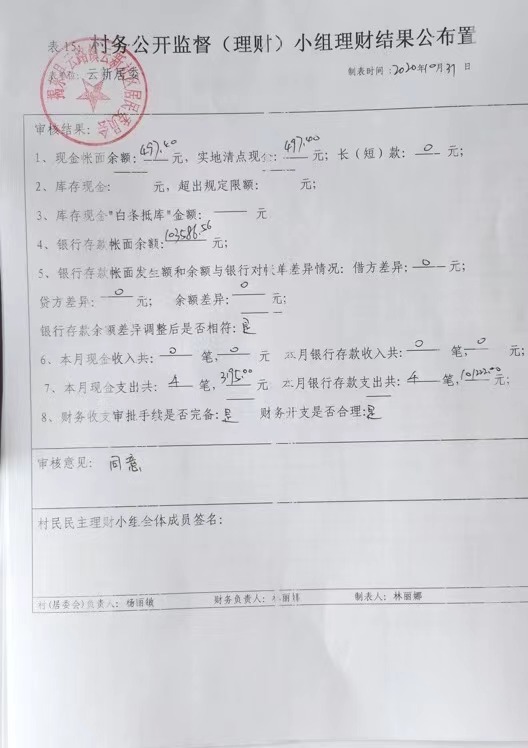 表15: 村务公开监督（理财）小组理财结果公布置
表单位: 云新居委 制表时间: 2020年10月31日
审核结果:
1、现金帐面余额: 497.40 元, 实地清点现金: 497.40 元; 长（短）款: 0 元;
2、库存现金: 元, 超出规定限额: 元;
3、库存现金"白条抵库"金额: 元
4、银行存款帐面余额: 103586.56 元;
5、银行存款帐面发生额和余额与银行对帐单差异情况: 借方差异: 0 元;
贷方差异: 0 元; 余额差异: 0 元;
银行存款余额差异调整后是否相符: 是
6、本月现金收入共: 0 笔, 0 元 本月银行存款收入共: 0 笔, 0 元;
7、本月现金支出共: 4 笔, 3195.00 元 本月银行存款支出共: 4 笔, 101222.00 元;
8、财务收支审批手续是否完备: 是 财务开支是否合理: 是
审核意见: 同意
村民民主理财小组全体成员签名:
村(居委会)负责人: 杨丽璇 财务负责人: 丽 制表人: 林丽娜